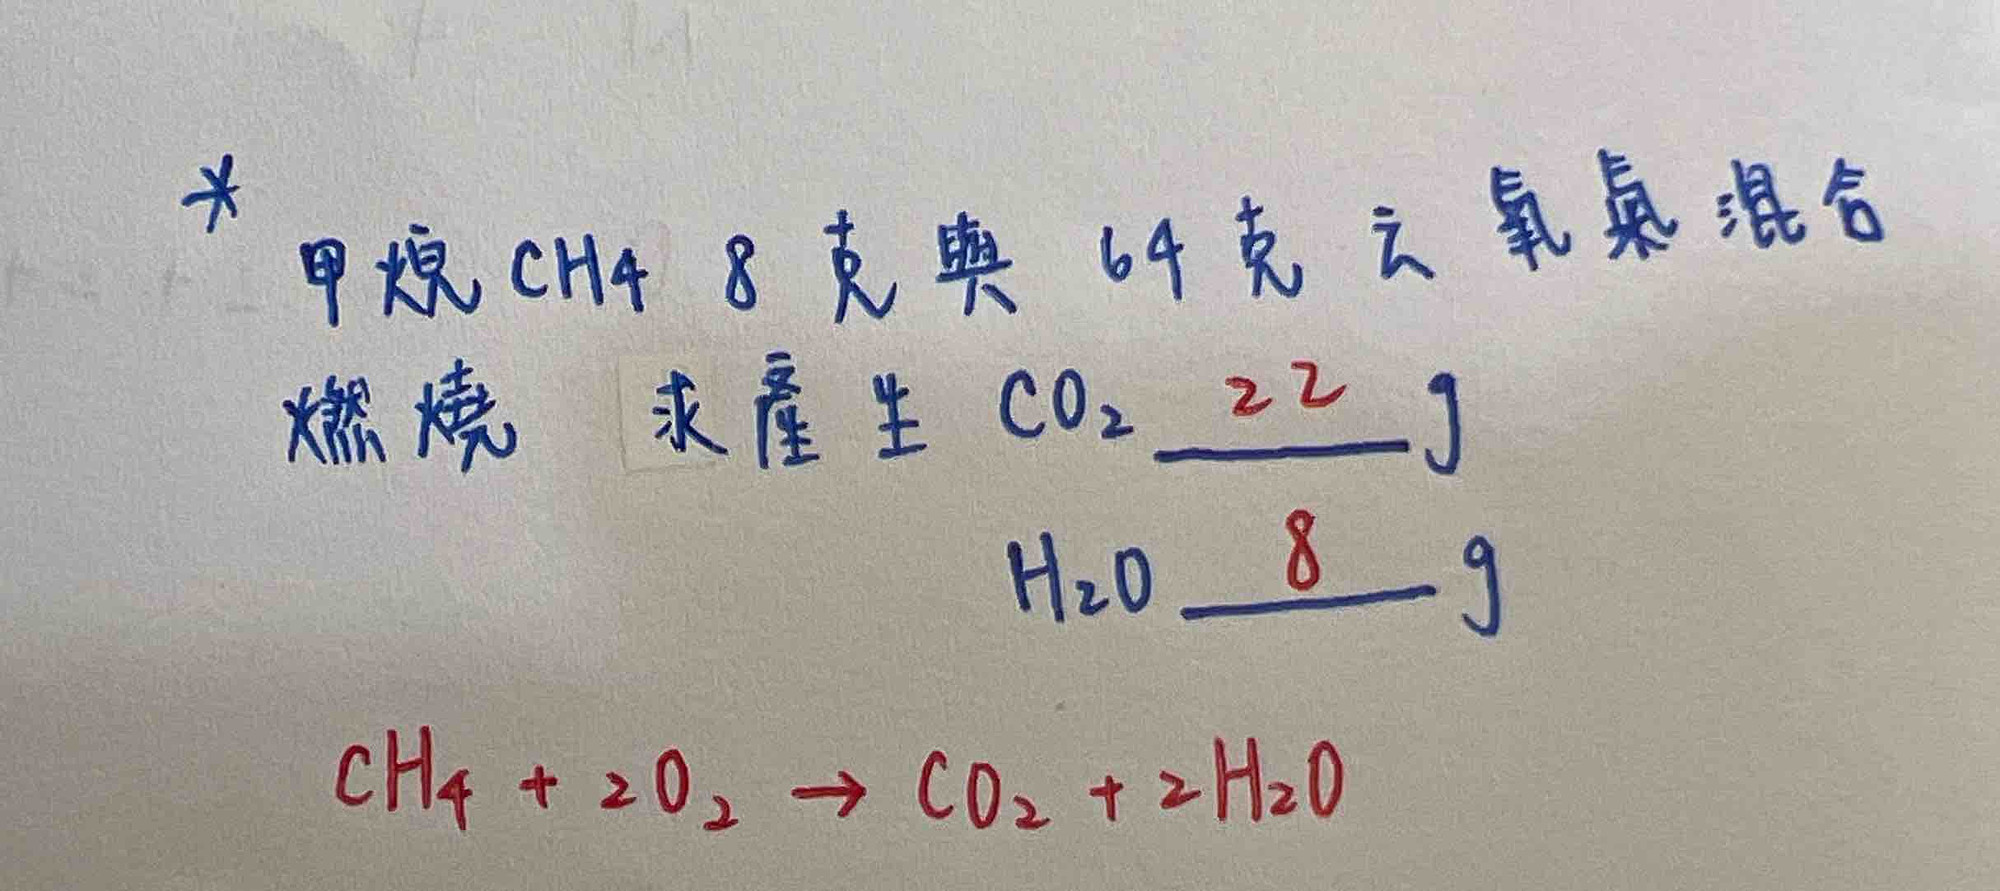 * 甲烷CH4 8克與64克之氧氣混合
燃燒 求產生 CO2 22 g
H2O 8 g
CH4 + 2O2 → CO2 + 2H2O